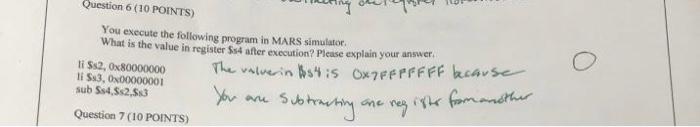 Question 6 (10 POINTS)
You execute the following program in MARS simulator.
What is the value in register $s4 after execution? Please explain your answer.
li $s2, 0x80000000
li $s3, 0x00000001
sub $s4,$s2,$s3
The value in $s4 is 0x7FFFFFFF because
You are subtracting one register from another
Question 7 (10 POINTS)